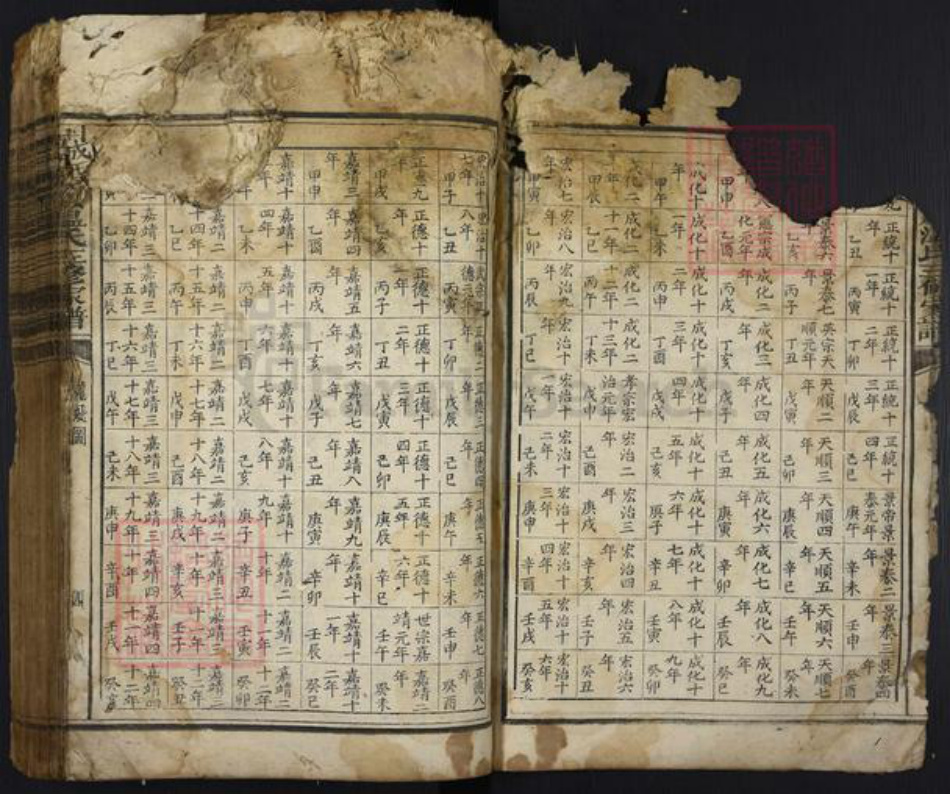 正統十年乙丑 正統十一年丙寅 正統十二年丁卯 正統十三年戊辰 正統十四年己巳 景帝景泰元年庚午 景泰二年辛未 景泰三年壬申 景泰四年癸酉
景泰六年乙亥 景泰七年丙子 英宗天順元年丁丑 天順二年戊寅 天順三年己卯 天順四年庚辰 天順五年辛巳 天順六年壬午 天順七年癸未
甲申 憲宗成化元年乙酉 成化二年丙戌 成化三年丁亥 成化四年戊子 成化五年己丑 成化六年庚寅 成化七年辛卯 成化八年壬辰 成化九年癸巳
成化十年甲午 成化十一年乙未 成化十二年丙申 成化十三年丁酉 成化十四年戊戌 成化十五年己亥 成化十六年庚子 成化十七年辛丑 成化十八年壬寅 成化十九年癸卯
成化二十年甲辰 成化二十一年乙巳 成化二十二年丙午 成化二十三年丁未 孝宗宏治元年戊申 宏治二年己酉 宏治三年庚戌 宏治四年辛亥 宏治五年壬子 宏治六年癸丑
宏治七年甲寅 宏治八年乙卯 宏治九年丙辰 宏治十年丁巳 宏治十一年戊午 宏治十二年己未 宏治十三年庚申 宏治十四年辛酉 宏治十五年壬戌 宏治十六年癸亥
宏治十七年甲子 宏治十八年乙丑 武宗正德元年丙寅 正德二年丁卯 正德三年戊辰 正德四年己巳 正德五年庚午 正德六年辛未 正德七年壬申 正德八年癸酉
正德九年甲戌 正德十年乙亥 正德十一年丙子 正德十二年丁丑 正德十三年戊寅 正德十四年己卯 正德十五年庚辰 正德十六年辛巳 世宗嘉靖元年壬午 嘉靖二年癸未
嘉靖三年甲申 嘉靖四年乙酉 嘉靖五年丙戌 嘉靖六年丁亥 嘉靖七年戊子 嘉靖八年己丑 嘉靖九年庚寅 嘉靖十年辛卯 嘉靖十一年壬辰 嘉靖十二年癸巳
嘉靖十 年 午 嘉靖十四年乙未 嘉靖十五年丙申 嘉靖十六年丁酉 嘉靖十七年戊戌 嘉靖十八年己亥 嘉靖十九年庚子 嘉靖二十年辛丑 嘉靖二十一年壬寅 嘉靖二十二年癸卯
嘉靖二十四年乙巳 嘉靖二十五年丙午 嘉靖二十六年丁未 嘉靖二十七年戊申 嘉靖二十八年己酉 嘉靖二十九年庚戌 嘉靖三十年辛亥 嘉靖三十一年壬子 嘉靖三十二年癸丑
嘉靖三十四年乙卯 嘉靖三十五年丙辰 嘉靖三十六年丁巳 嘉靖三十七年戊午 嘉靖三十八年己未 嘉靖三十九年庚申 嘉靖四十年辛酉 嘉靖四十一年壬戌 嘉靖四十二年癸亥